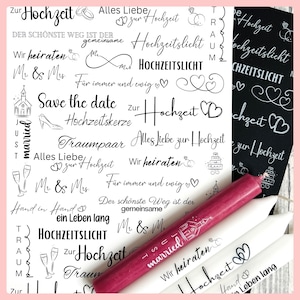 Zur Hochzeit
Alles Liebe
zur Hochzeit
DER SCHÖNSTE WEG IST DER
gemeinsame
Hochzeitslicht
Wir heiraten
HOCHZEITSLICHT
Mr & Mrs
Für immer und ewig
Save the date
Zur Hochzeit
Hochzeitskerze
Traumpaar
Alles Liebe zur Hochzeit
JUST married
Alles Liebe
zur Hochzeit
Wir heiraten
Mr & Mrs
Für immer und ewig
Mr & Mrs
Hand in Hand
Der schönste Weg ist der
gemeinsame
ein Leben lang
HOCHZEITSLICHT
TRAUM
Zur Hochzeit
Mr & Mrs
Hochzeitslicht
HOCHZEITSLICHT
Hochzeit
JUST married
Wir heiraten
Zur Hochzeit
Hand
ein Leben lang
TRAUM